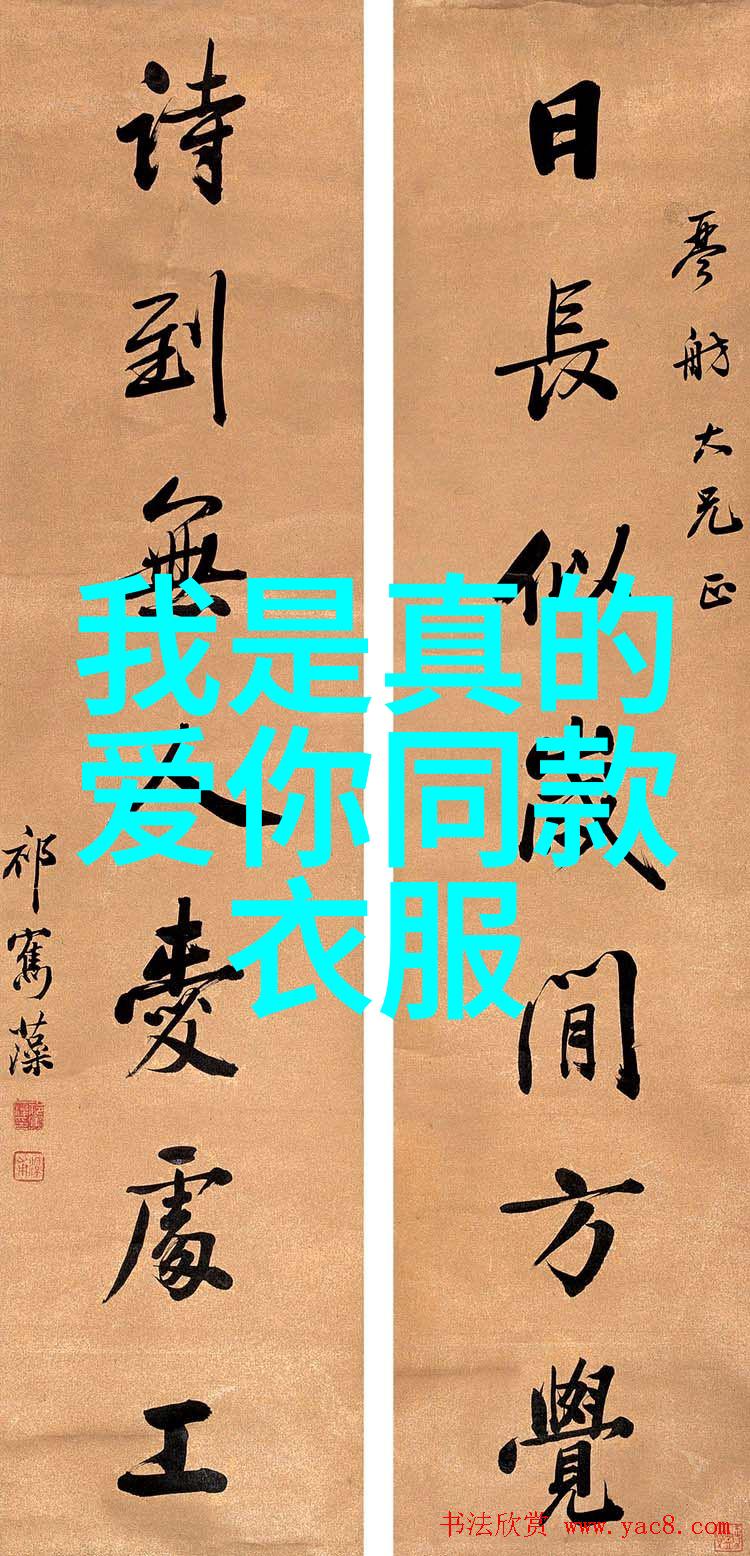 日長似歲閒方覺
琴舫大兄正
詩到無人愛處工
祁寯藻
我是真的
爱你同款
衣服
书法欣赏 www.yac8.com